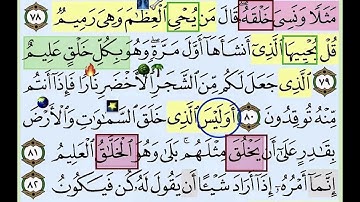 مَثَلًا وَنَسِىَ خَلْقَهُۥ قَالَ مَن يُحْىِ ٱلْعِظَٰمَ وَهِىَ رَمِيمٌ ٧٨
قُلْ يُحْيِيهَا ٱلَّذِىٓ أَنشَأَهَآ أَوَّلَ مَرَّةٍ وَهُوَ بِكُلِّ خَلْقٍ عَلِيمٌ
٧٩ ٱلَّذِى جَعَلَ لَكُم مِّنَ ٱلشَّجَرِ ٱلْأَخْضَرِ نَارًا فَإِذَآ أَنتُم
مِّنْهُ تُوقِدُونَ ٨٠ أَوَلَيْسَ ٱلَّذِى خَلَقَ ٱلسَّمَٰوَٰتِ وَٱلْأَرْضَ
بِقَٰدِرٍ عَلَىٰٓ أَن يَخْلُقَ مِثْلَهُم بَلَىٰ وَهُوَ ٱلْخَلَّٰقُ ٱلْعَلِيمُ ٨١
إِنَّمَآ أَمْرُهُۥٓ إِذَآ أَرَادَ شَيْـًٔا أَن يَقُولَ لَهُۥ كُن فَيَكُونُ ٨٢